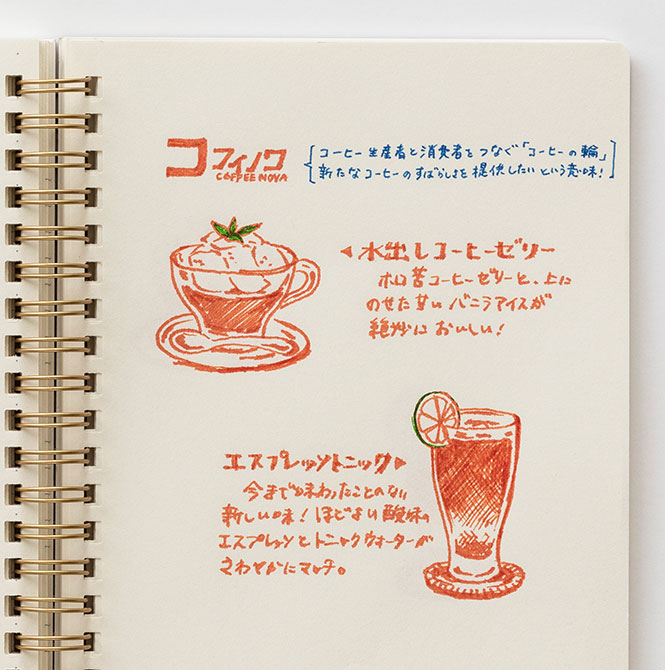 コフィノワ
COFFEE NOVA
コーヒー生産者と消費者をつなぐ「コーヒーの輪」
新たなコーヒーのすばらしさを提供したいという意味!
◀水出しコーヒーゼリー
ホロ苦コーヒーゼリーと、上に
のせた甘いバニラアイスが
絶妙においしい!
エスプレッソトニック▶
今まで味わったことのない
新しい味!ほどよい酸味の
エスプレッソとトニックウォーターが
さわやかにマッチ。